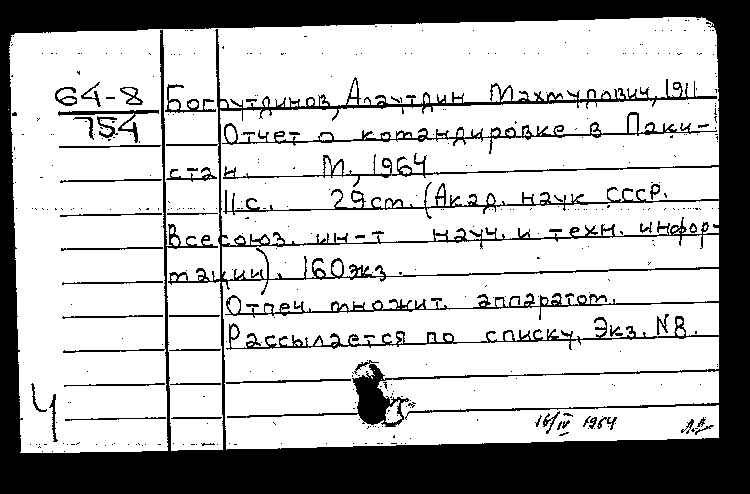 64-8
754
Богоутдинов, Алаутдин Махмудович, 1911
Отчет о командировке в Паки-
стан. М., 1964
11 с. 29 см. (Акад. наук СССР.
Всесоюз. ин-т науч. и техн. инфор-
мации). 160 экз.
Отпеч. множит. аппаратом.
Рассылается по списку, Экз. N8.
Ч
16/IV 1964